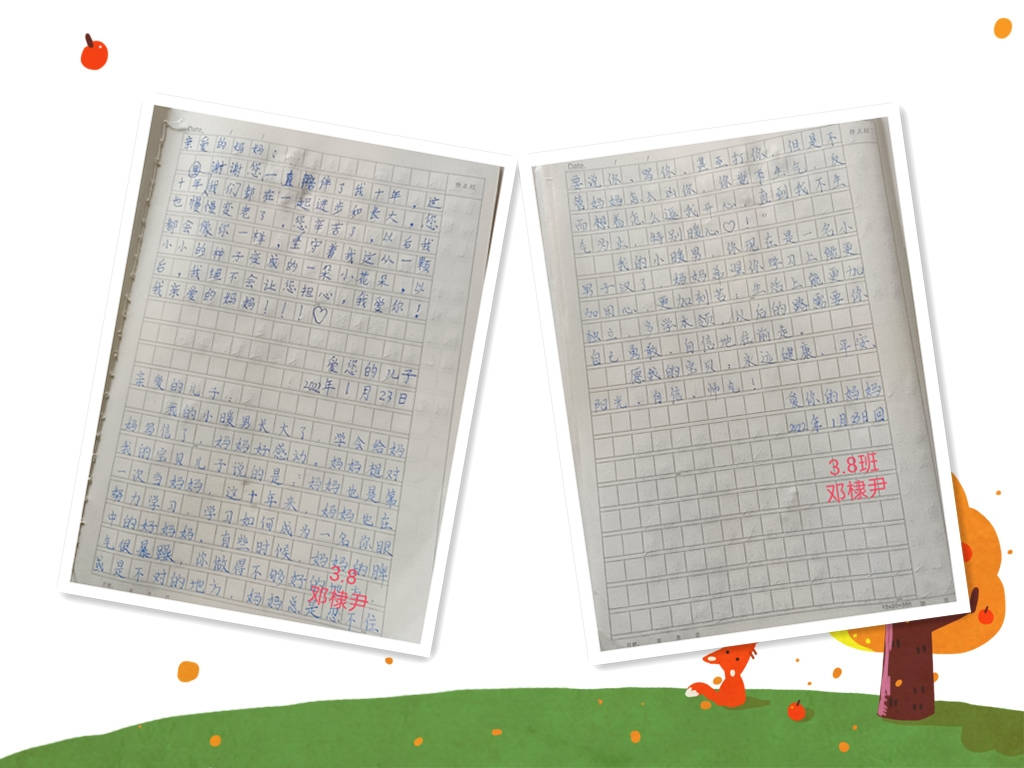 Date / /
亲爱的妈妈：
谢谢您一直陪伴了我十年，这
十年我们都在一起进步和长大。您
也慢慢变老了，您辛苦了，以后我
都会像你一样，坚守着我这从一颗
小小的种子变成的一朵小花朵。以
后，我绝不会让您担心，我爱你！
我亲爱的妈妈！！！♡
爱您的儿子
2022年1月23日
亲爱的儿子：
我的小暖男长大了，学会给妈
妈写信了，妈妈好感动。妈妈想对
我的宝贝儿子说的是：妈妈也是第
一次当妈妈，这十年来，妈妈也在
努力学习，学习如何成为一名你眼
中的好妈妈，有些时候，妈妈的脾
气很暴躁，你做得不够好的
或是不对的地方，妈妈总是忍不住
3.8
邓棣尹
Date / /
要说你，骂你，甚至打你，但是不
管妈妈怎么凶你，你都不生气，反
而想着怎么逗我开心，直到我不生
气为止，特别暖心♡！
我的小暖男，你现在是一名小
男子汉了，妈妈希望你学习上能更
加用心，更加刻苦；生活上能更加
独立，多学本领，以后的路需要你
自己勇敢、自信地往前走。
愿我的宝贝：永远健康、平安、
阳光、自信、帅气！
爱你的妈妈
2022年1月23日
3.8班
邓棣尹